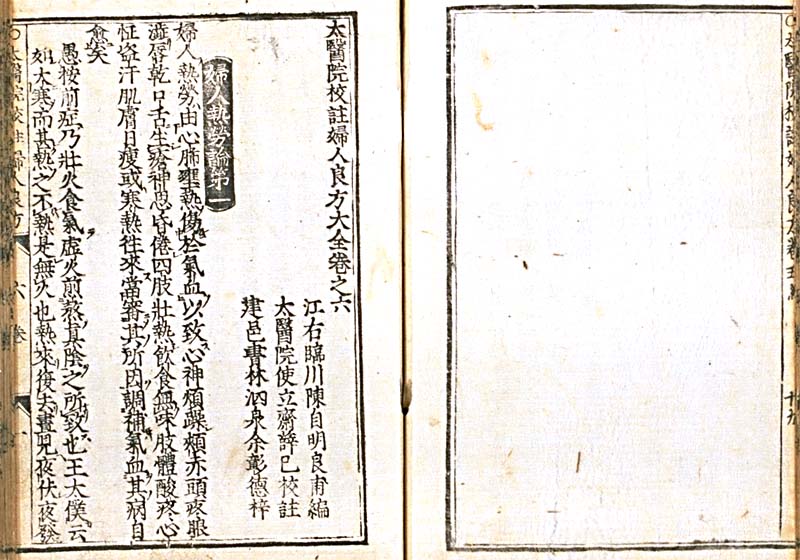 太醫院校註婦人良方大全卷之六
江右臨川陳自明良甫編
太醫院使立齋薛已校註
建邑書林泗泉余彰德梓
婦人熱勞論第一
婦人熱勞由心肺壅熱傷於氣血以致心神煩躁頰赤頭疼眼
澁唇乾口舌生瘡神思昏倦四肢壯熱飲食無味肢體酸疼心
怔盜汗肌膚日瘦或寒熱往來當審其所因調補氣血其病自
愈矣
愚按前症乃壯火食氣虛火煎熬真陰之所致也王太僕云
如大寒而甚熱之不熱是無火也熱來復去晝見夜伏夜發
太醫院校註婦人良方
六卷